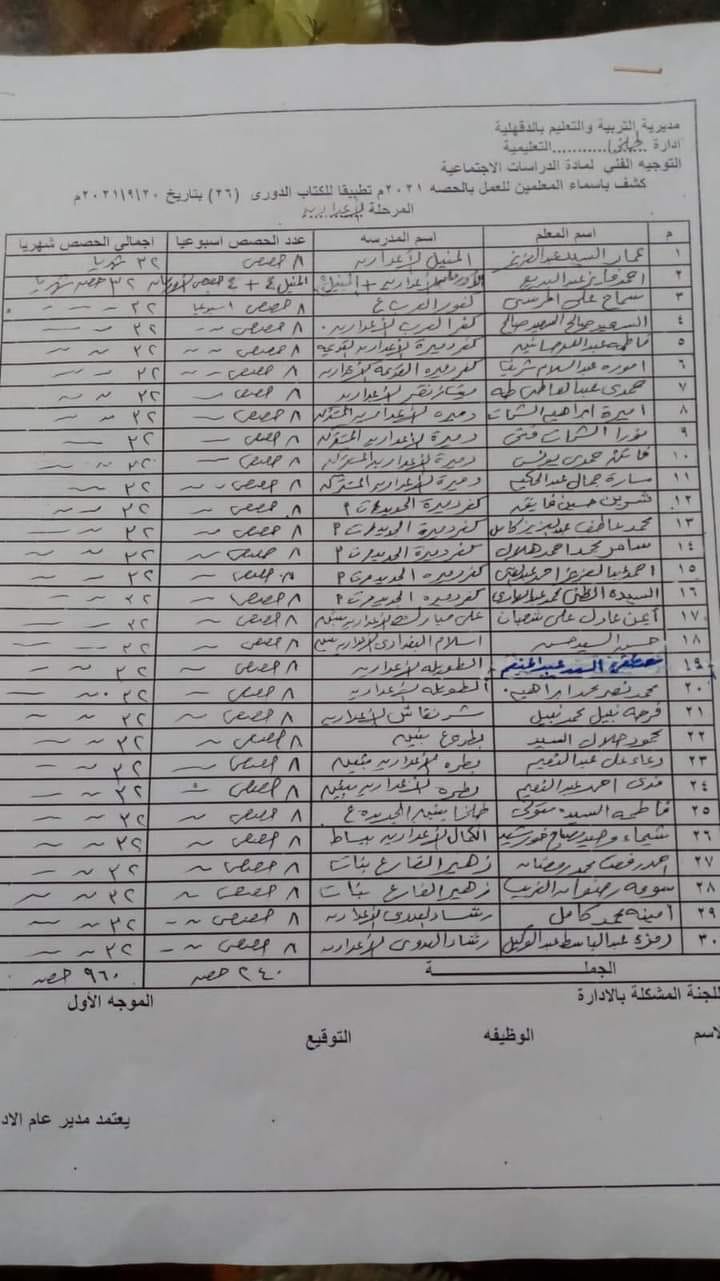 مديرية التربية والتعليم بالدقهلية
ادارة طلخا...........التعليمية
التوجيه الفنى لمادة الدراسات الاجتماعية
كشف باسماء المعلمين للعمل بالحصه ٢٠٢١م تطبيقا للكتاب الدورى (٢٦) بتاريخ ٢٠٢١/٩/٢٠م
المرحلة الإعدادية
م اسم المعلم اسم المدرسه عدد الحصص اسبوعيا اجمالى الحصص شهريا
١ عمار السيد عبدالعزيز المنيل الإعدادية ٨ حصص ٣٢ شهريا
٢ احمد فايز عبدالبديع + المنيل المنيل ٤ + ٤ حصص ٣٢ حصه شهريا
٣ سماح على المرسى كفور العرب ع ٨ حصص اسبوعيا ٣٢
٤ السعيد صالح السعيد صالح كفر العرب الإعدادية ٨ حصص ٣٢
٥ فاطمه كفر دميرة الإعدادية القديمة ٨ حصص ٣٢
٦ عبدالسلام شريف كفر دميره القديمة الإعدادية ٨ حصص ٣٢
٧ حمدى عبدالعاطى طه الإعدادية ٨ حصص ٣٢
٨ اميرة ابراهيم الشحات دميره الإعدادية المشتركه ٨ حصص ٣٢
٩ نورا الشحات فتحى دميرة الإعدادية المشتركه ٨ حصص ٣٢
١٠ فاتن حمدى يونس دميرة الإعدادية المشتركه ٨ حصص ٣٢
١١ سارة جمال عبدالحكيم دميرة الإعدادية المشتركه ٨ حصص ٣٢
١٢ شرين حسين فايد كفر دميرة الجديدة ٨ حصص ٣٢
١٣ محمد عاطف عبدالعزيز كامل كفر دميرة الجديدة ٨ حصص ٣٢
١٤ سامر محمد احمد هلال كفر دميرة الجديدة ٨ حصص ٣٢
١٥ احمد عبدالعزيز احمد كفر دميره الجديدة ٨ حصص ٣٢
١٦ السيدة محمد عبدالهادى كفر دميره الجديدة ٨ حصص ٣٢
١٧ أيمن عادل على شعبان على مبارك الإعدادية بنين ٨ حصص ٣٢
١٨ حسن السيد حسن اسلام البغدادى الإعدادية بنين ٨ حصص ٣٢
١٩ مصطفى السيد عبدالمنعم الطويله الإعدادية ٨ حصص ٣٢
٢٠ محمد نصر محمد ابراهيم الطويله الإعدادية ٨ حصص ٣٢
٢١ فرحه نبيل محمد نبيل شرنقاش الإعدادية ٨ حصص ٣٢
٢٢ محمود جلال السيد بطره ع بنين ٨ حصص ٣٢
٢٣ دعاء على عبدالنعيم بطره الإعدادية بنين ٨ حصص ٣٢
٢٤ فدى احمد عبدالنعيم بطره الإعدادية بنين ٨ حصص ٣٢
٢٥ فاطمه السيد متولى طلخا بنين الجديده ع ٨ حصص ٣٢
٢٦ شيماء وحيد صباح خورشيد الكمال الإعدادية ببساط ٨ حصص ٣٢
٢٧ احمد رفعت محمد رمضان زهير الفارع بنات ٨ حصص ٣٢
٢٨ سومه رضوان الغريب زهير الفارع بنات ٨ حصص ٣٢
٢٩ أمينه محمد كامل رشاد البدوى الإعدادية ٨ حصص ٣٢
٣٠ رمزى عبدالباسط عبدالوكيل رشاد البدوى الإعدادية ٨ حصص ٣٢
الجملـــــــــة ٢٤٠ حصه ٩٦٠ حصه
للجنة المشكلة بالادارة الموجه الأول
لاسم الوظيفه التوقيع
يعتمد مدير عام الاد